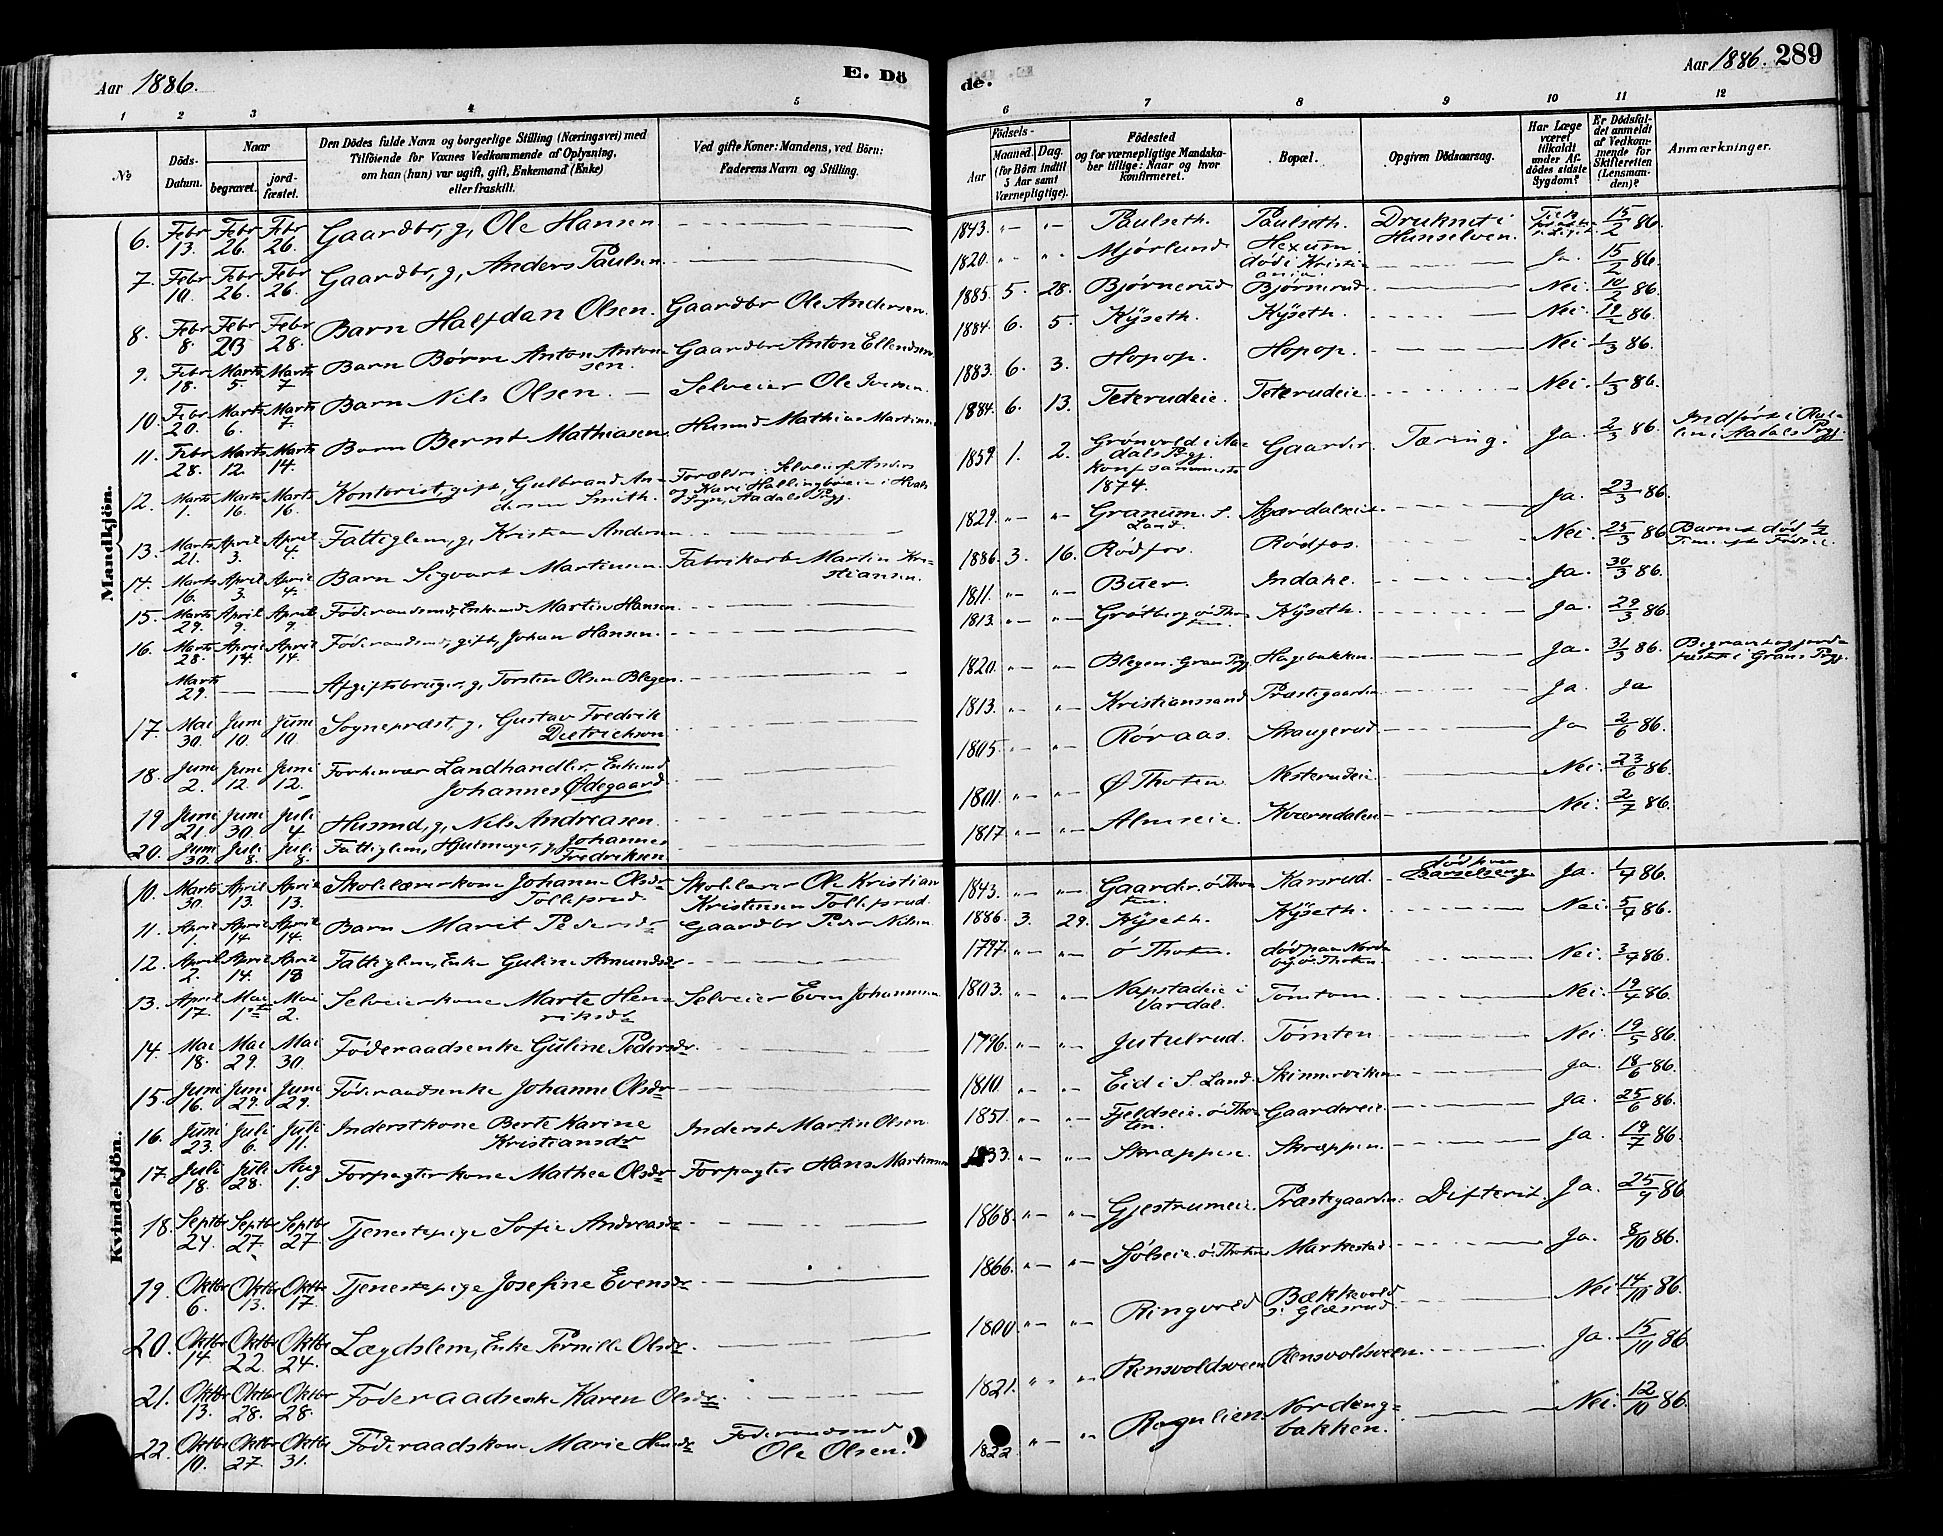 Aar 1886. E. Dö
de. Aar 1886. 289
1 2 3 4 5
6 7 8 9 10 11 12
No
Döds-Datum.
Naar
begravet.
jordfæstet.
Den Dödes fulde Navn og borgerlige Stilling (Næringsvei) med
Tilföiende for Voxnes Vedkommende af Oplysning,
om han (hun) var ugift, gift, Enkemand (Enke)
eller fraskilt.
Ved gifte Koner: Mandens, ved Börn:
Faderens Navn og Stilling.
Födsels-
Aar
Maaned. Dag.
(for Börn indtil
5 Aar samt
Værnepligtige).
Födested
og for værnepligtige Mandska-
ber tillige: Naar og hvor
konfirmeret.
Bopæl.
Opgiven Dödsaarsag.
Har Læge
været
tilkaldt
under Af-
dödes sidste
Sygdom?
Er Dödsfal-
det anmeldt
af Vedkom-
mende for
Skifteretten
(Lensman-
den)?
Anmærkninger.
Mandkjön.
6. Febr 13. Febr 26. Febr 26. Gaardbr, g, Ole Hansen 1843. Paulseth. Paulseth. Druknet i Hunselven. 15/2 86.
7. Febr 10. Febr 26. Febr 26. Gaardbr, g, Anders Paulsen 1820. Mjörlund Hexum död i Kristiania. Ja. 15/2 86.
8. Febr 8. Febr 28. Barn Halfdan Olsen. Gaardbr Ole Andersen. 1885. 5. 28. Bjørnerud Bjørnerud. Nei. 10/2 86.
9. Febr 18. Marts 5. Marts 7. Barn Börre Anton Antonsen. Gaardbr Anton Ellendsen 1884. 6. 5. Kÿseth. Kÿseth. Nei. 19/2 86.
10. Febr 20. Marts 6. Marts 7. Barn Nils Olsen. Selveier Ole Iversen. 1883. 6. 3. Hopop. Hopop. Nei. 1/3 86.
11. Febr 28. Marts 12. Marts 14. Barn Bernt Mathiasen. Husmd Mathias Martins. 1884. 6. 13. Teterudeie. Teterudeie. Nei. 1/3 86.
12. Marts 1. Marts 16. Marts 16. Kontorist, gift, Gulbrand Andersen Smith. Forældre: Selveierf. Anders og Kari Hallingbyeie i Sogn, Aadals Pgj. 1859. 1. 2. Grönvold i Aadals Pgj. konf sammests 1874. Gaarder. Tæring. Ja. 2/3 86. Indfört i i Aadals Pgj.
13. Marts 21. April 3. April 4. Fattiglem, g, Kristian Andersen 1829. Granum. S. Land. Ja. 23/3 86.
14. Marts 16. April 3. April 4. Barn Sigvart Martinsen. Fabrikarb Martin Kristiansen. 1886. 3. 16. Rödfos. Rödfos. Nei. 25/3 86. Barnet död 1/2 Time
15. Marts 29. April 9. April 9. Föderaadsmd, Enkemd Martin Hansen 1811. Buer. Indake. Ja. 30/3 86.
16. Marts 28. April 14. April 14. Föderaadsmd, gift, Johan Hansen. 1813. Grötberg ö. Thoten. Kÿseth. Ja. 29/3 86.
Marts 29. Afgiftsbruger, g, Torsten Olsen Blegen. 1820. Blegen. Gran Pgj. Hagebakken. Ja. 31/3 86. Begravet og jordfæstet i Grans Pgj.
17. Mai 30. Juni 10. Juni 10. Sognepræst, g, Gustav Fredrik Dietrichson 1813. Kristianssand Præstegaarden Ja. Ja
18. Juni 2. Juni 12. Juni 12. Forhenvær Landhandler, Enkemd Johannes Ødegaard 1805. Röraas. Skaugerud. Ja 2/6 86.
19 Juni 21. Juni 30. Juli 4. Husmd, g, Nils Andreasen. 1801. Ø Thoten. Nesterudeie. Nei. 23/6 86.
20. Juni 30. Juli 8. Juli 8. Fattiglem, Hjulmager, g, Johannes Fredriksen 1817. Almseie. Kværndalen Nei. 2/7 86.
Kvindekjön.
10. Marts 30. April 13. April 13. Skolelærerkone Johanne Olsdr Tollefsrud. Skolelærer Ole Kristian Kristensen Tollefsrud. 1843. Gaarder. ö. Thoten. Karsrud. död paa Barselseng. Ja. 1/4 86.
11. April 1. April 14. April 14. Barn Marit Pedersdr Gaardbr Peder Nilsen 1886. 3. 29. Kÿseth. Kÿseth. Nei. 5/4 86.
12. April 2. April 14. April 18 Fattiglem, Enke Guline Amundsdr 1797. ö Thoten. död paa Nordeby ö. Thoten. Nei. 3/4 86.
13. April 17. Mai 1ste Mai 2. Selveierkone Marte Henriksdr Selveier Even Johannesen 1803. Napstadeie i Vardal. Tömten. Nei. 19/4 86.
14. Mai 18. Mai 29. Mai 30. Föderaadsenke Guline Pedersdr. 1796. Jutulrud. Tömten Nei. 19/5 86.
15. Juni 16. Juni 29. Juni 29. Föderaadsenke Johanne Olsdr 1810. Eid i S. Land. Skinnerviken Ja. 18/6 86.
16. Juni 23. Juli 6. Juli 11. Inderstkone Berte Karine Kristiansdr Inderst Martin Olsen. 1851. Fjeldseie. ö. Thoten. Gaardereie. Ja. 25/6 86.
17. Juli 18. Juli 28. Aug 1. Forpagterkone Mathea Olsdr Forpagter Hans Martinsen 1833. Skræppen. Skræppen. Ja. 19/7 86.
18. Septbr 24. Septbr 27. Septbr 27 Tjenestepige Sofie Andreasdr 1868. Gjestrumeie. Præstegaarden. Difterit. Ja. 25/9 86.
19. Oktbr 6. Oktbr 13. Oktbr 17. Tjenestepige Josefine Evensdr 1866. Sjölseie. ö. Thoten Markestad. Ja. 8/10 86.
20. Oktbr 14. Oktbr 22. Oktbr 24. Lægdslem, Enke Pernille Olsdr. 1800. Ringvold Bækkevold Glæsrud. Nei. 14/10 86.
21. Oktbr 13. Oktbr 28. Oktbr 28. Föderaadsenke Karen Olsdr. 1821. Rensvoldsveen Rensvoldsveen. Ja. 15/10 86.
22. Oktbr 10. Oktbr 27. Oktbr 31. Föderaadskone Marie Hansdr Föderaadsmd Ole Olsen. 1822. Rognlien Nordengbakken. Nei. 12/10 86.